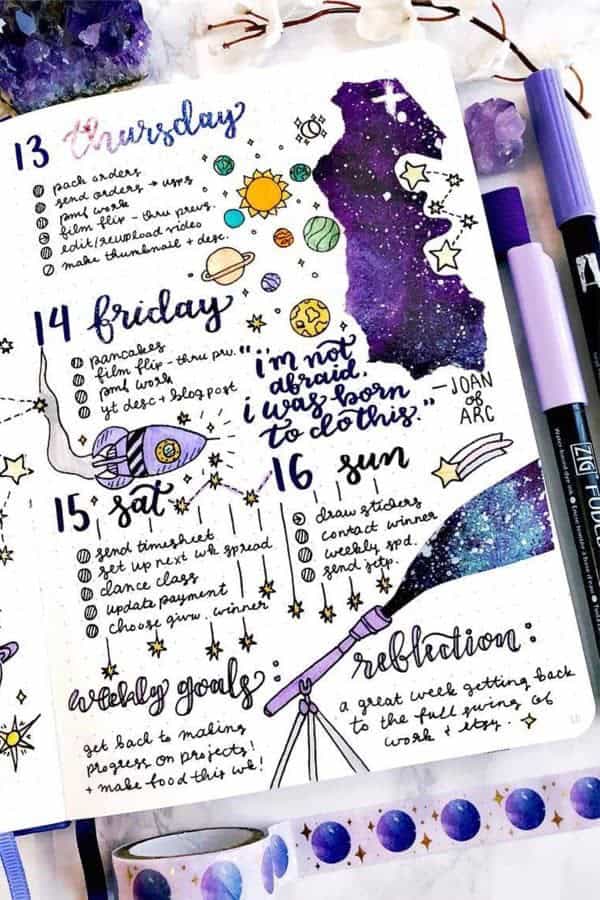 13 thursday
pack orders
send orders → usps
pml work
film flip-thru prevs.
edit/reupload video
make thumbnail + desc.
14 friday
pancakes
film flip-thru prv.
pml work
yt desc + blog post
"i'm not
afraid.
i was born
to do this."
—JOAN
of
ARC
15 sat
send timesheet
set up next wk spread
dance class
update payment
choose givw. winner
16 sun
draw stickers
contact winner
weekly spd.
send
weekly goals:
get back to making
progress on projects!
+ make food this wk!
reflection:
a great week getting back
to the full swing of
work + etsy.
ZIG